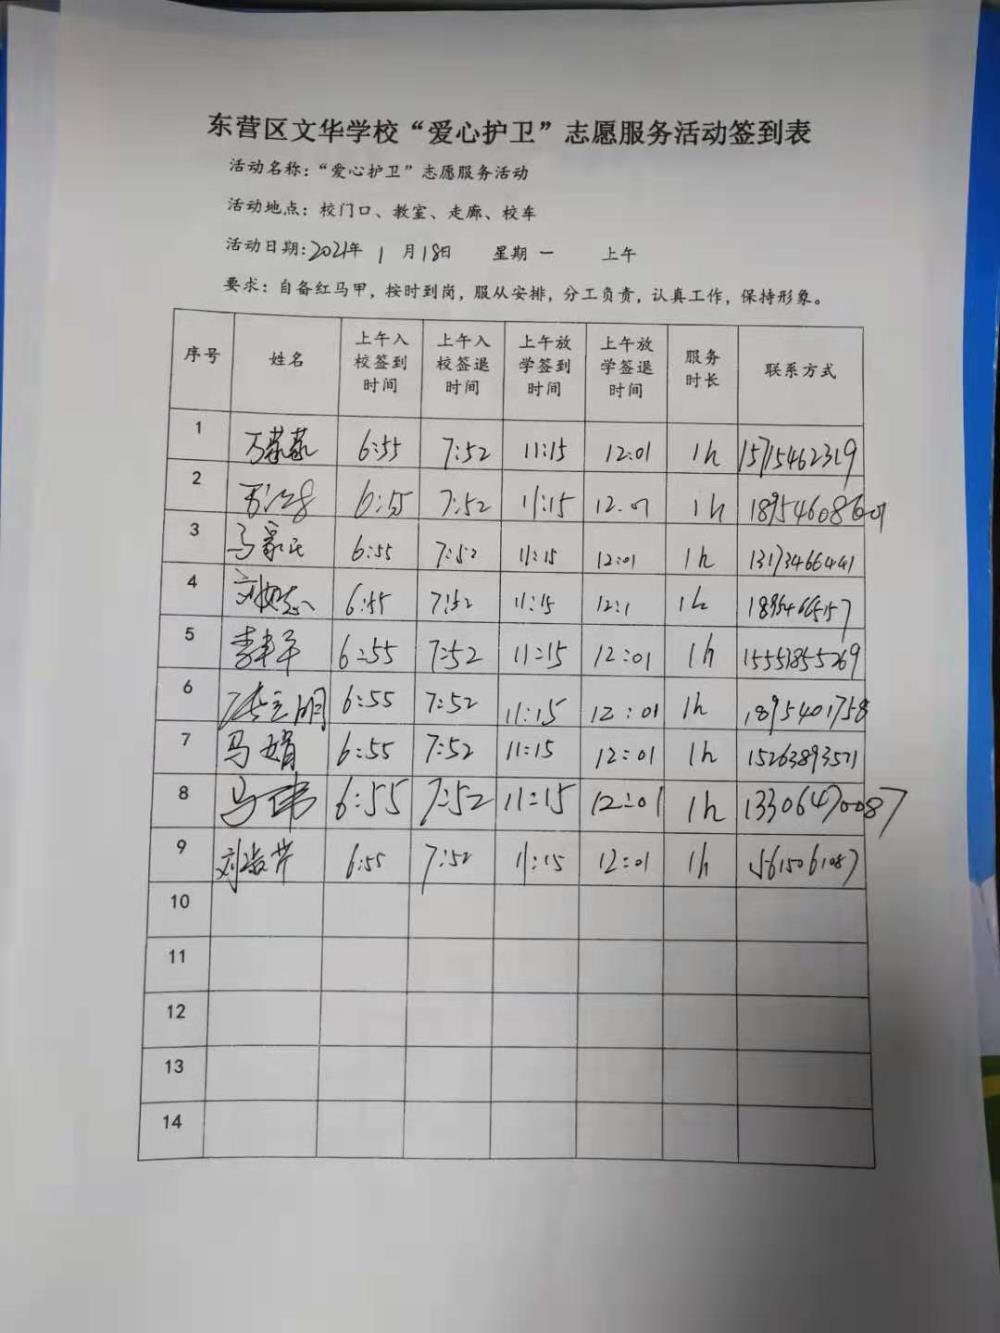 东营区文华学校“爱心护卫”志愿服务活动签到表
活动名称：“爱心护卫”志愿服务活动
活动地点：校门口、教室、走廊、校车
活动日期：2021年 1 月18日 星期 一 上午
要求：自备红马甲，按时到岗，服从安排，分工负责，认真工作，保持形象。
序号 姓名 上午入校签到时间 上午入校签退时间 上午放学签到时间 上午放学签退时间 服务时长 联系方式
1 6:55 7:52 11:15 12:01 1h 15715462319
2 6:55 7:52 11:15 12:01 1h
3 6:55 7:52 11:15 12:01 1h 13173466441
4 6:55 7:52 11:15 12:1 1h
5 6:55 7:52 11:15 12:01 1h 15551855269
6 6:55 7:52 11:15 12:01 1h 1895401758
7 马娟 6:55 7:52 11:15 12:01 1h 15263893571
8 马玮 6:55 7:52 11:15 12:01 1h 13306470087
9 6:55 7:52 11:15 12:01 1h 15615061087
10
11
12
13
14